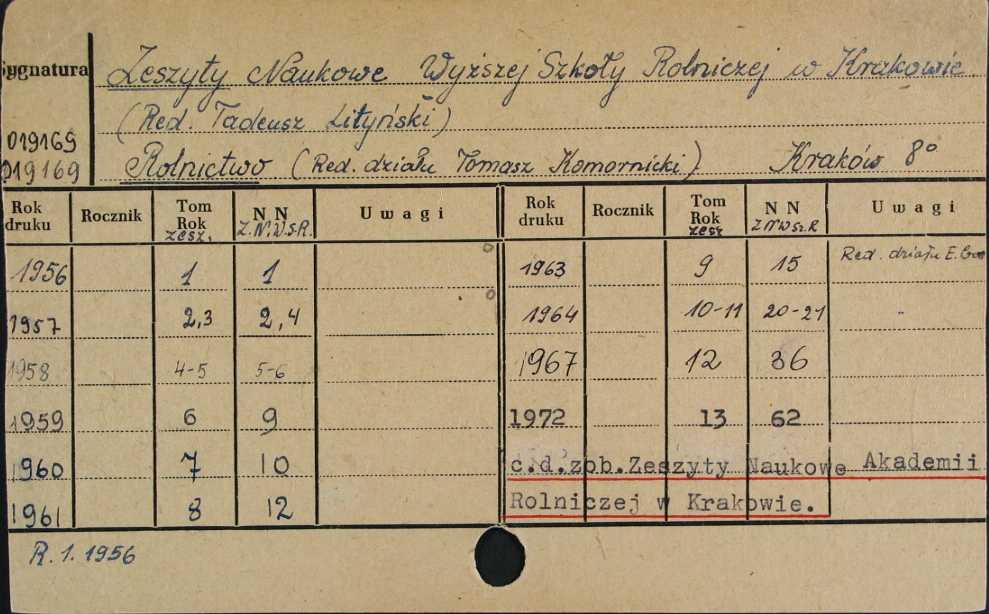 Sygnatura
019169
019169
Zeszyty Naukowe Wyższej Szkoły Rolniczej w Krakowie.
(Red. Tadeusz Lityński)
Rolnictwo (Red. działu Tomasz Komornicki) Kraków 8°
Rok druku Rocznik Tom Rok zesz. N N Z.N.W.S.R. Uwagi
1956 1 1
1957 2,3 2,4
1958 4-5 5-6
1959 6 9
1960 7 10
1961 8 12
Rok druku Rocznik Tom Rok zesz N N ZNWSz.R Uwagi
1963 9 15 Red. działu E.
1964 10-11 20-21 "
1967 12 36
1972 13 62
c.d.zob.Zeszyty Naukowe Akademii
Rolniczej w Krakowie.
R. 1. 1956